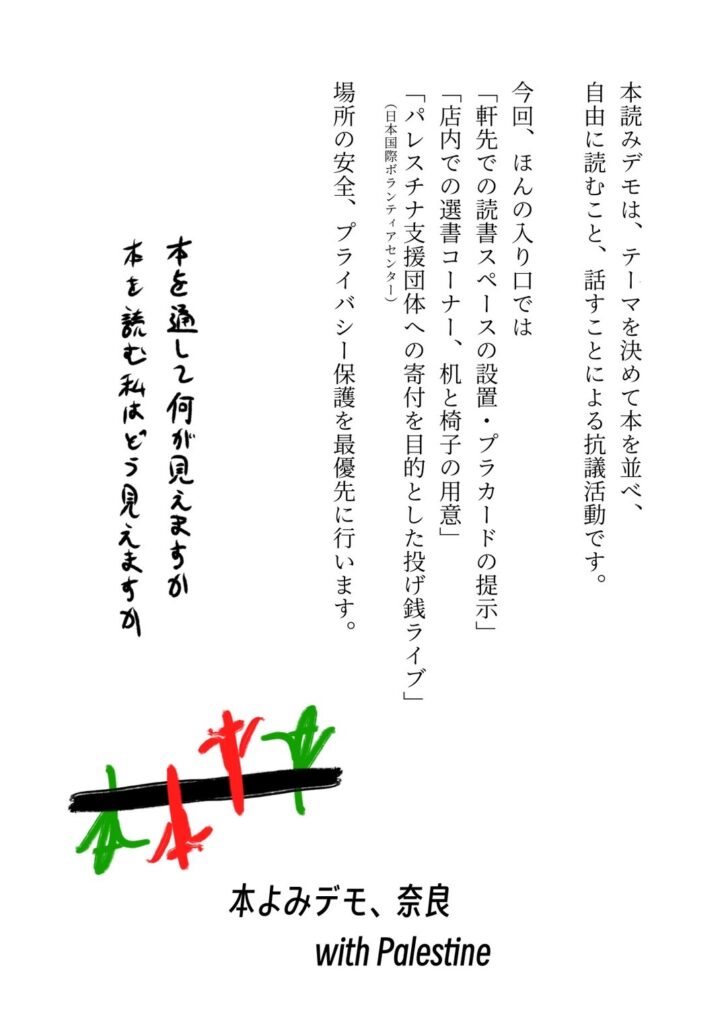 本読みデモは、テーマを決めて本を並べ、
自由に読むこと、話すことによる抗議活動です。
今回、ほんの入り口では
「軒先での読書スペースの設置・プラカードの提示」
「店内での選書コーナー、机と椅子の用意」
「パレスチナ支援団体への寄付を目的とした投げ銭ライブ」
（日本国際ボランティアセンター）
場所の安全、プライバシー保護を最優先に行います。
本を通して何が見えますか
本を読む私はどう見えますか
本よみデモ、奈良
with Palestine